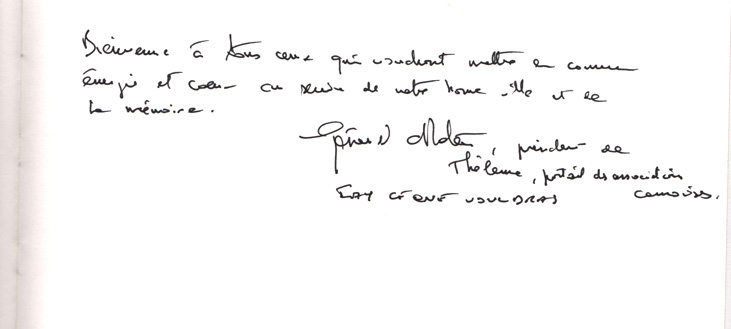 Bienvenue à tous ceux qui voudront mettre en commun
énergie et cœur au service de notre bonne ville et de
la mémoire.
Gérard, président de
Thélème, portail des associations
FAY CE QUE VOULDRAS